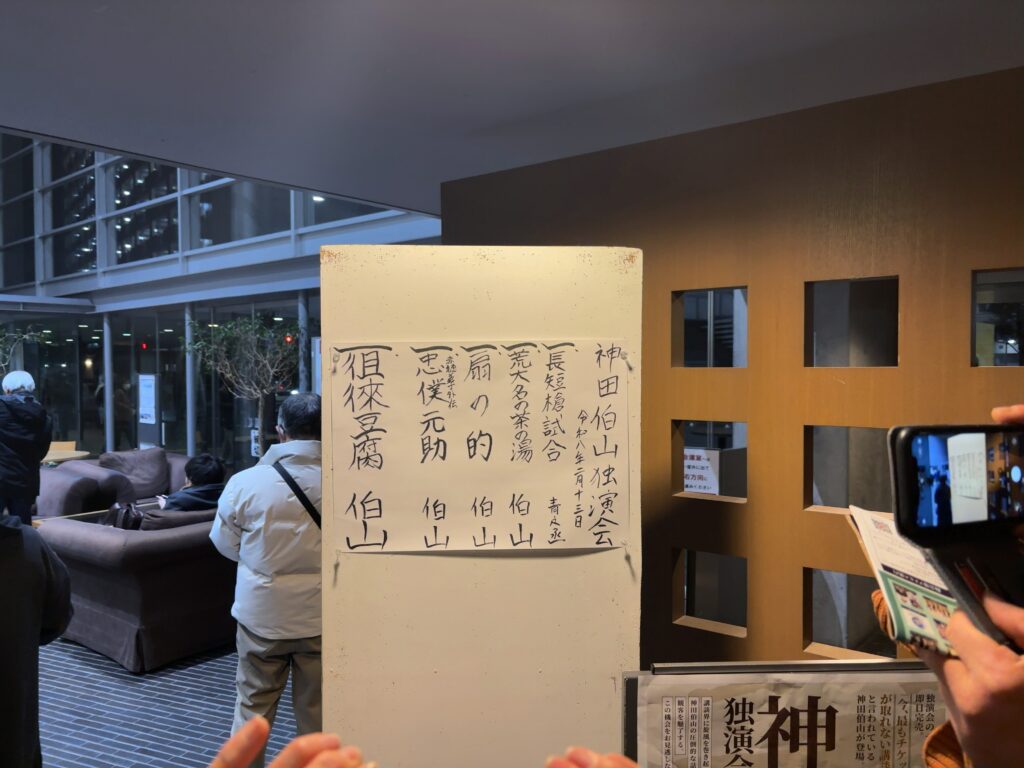 神田伯山独演会
令和八年二月十三日
一、長短槍試合 青之丞
一、荒大名の茶の湯 伯山
一、扇の的 伯山
赤穂義士外伝
一、忠僕元助 伯山
一、徂徠豆腐 伯山
独演会の
即日完売、
「今、最もチケッ
が取れない講
と言われている
神田伯山が登場
神
独演
講談界に旋風を巻き
神田伯山の圧倒的な話
観客を魅了する。
この機会をお見逃し